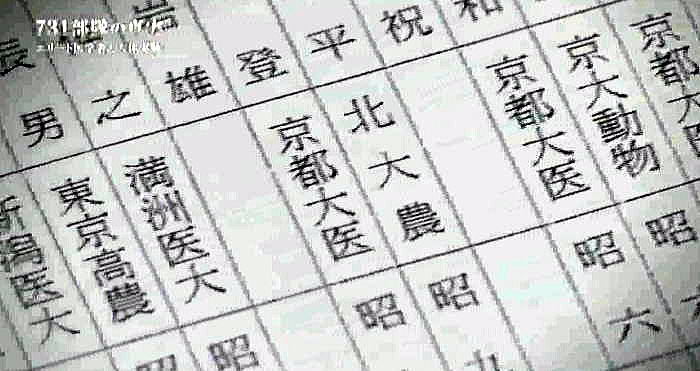 731部隊の真実
エリート医学者と人体実験
京都大
昭
京大動物
昭
和
京都大医
昭六
祝
平
北大農
昭九
登
京都大医
昭
雄
之
満洲医大
昭
男
東京高農
昭
新潟医大